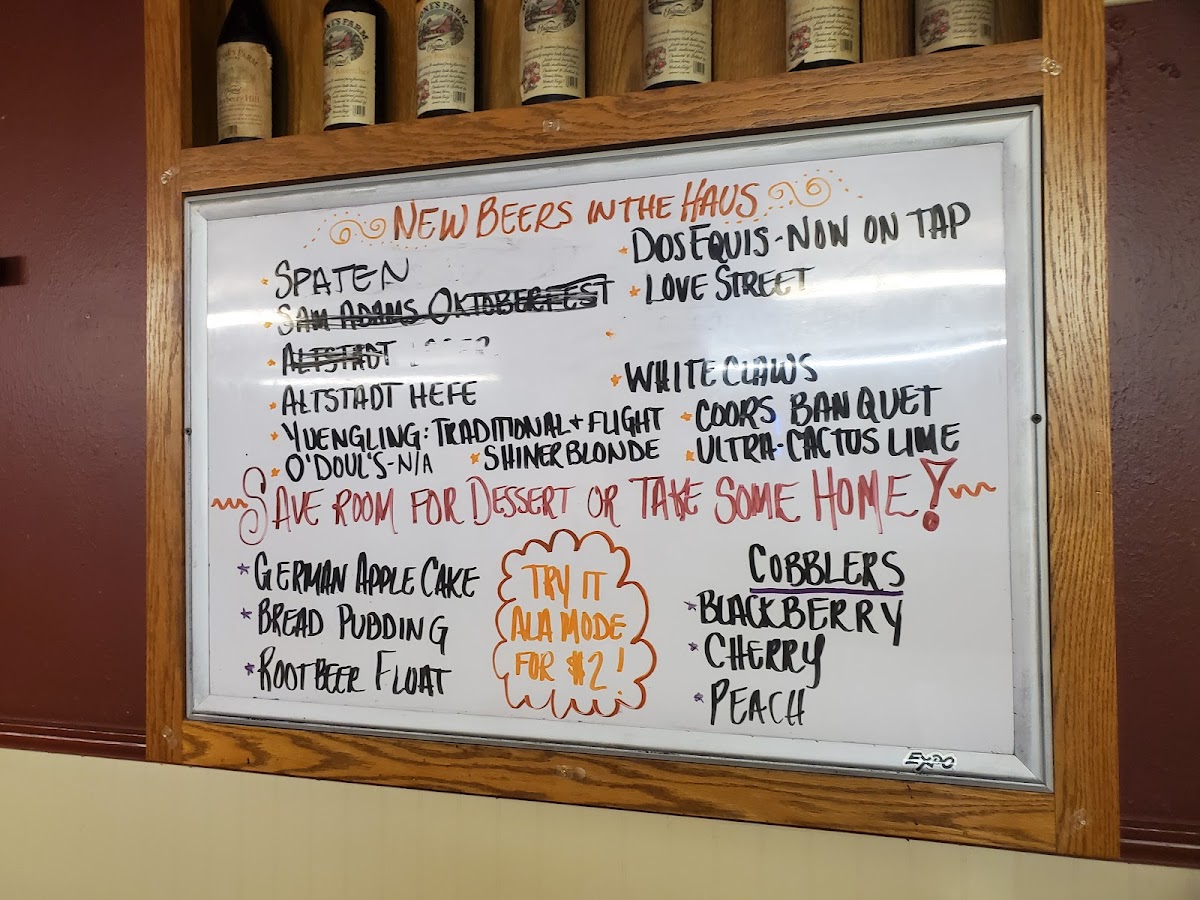 NEW BEERS IN THE HAUS
SPATEN
SAM ADAMS OKTOBERFEST
ALTSTADT LAGER
ALTSTADT HEFE
YUENGLING: TRADITIONAL + FLIGHT
O'DOUL'S - N/A
SHINER BLONDE
DOS EQUIS - NOW ON TAP
LOVE STREET
WHITE CLAWS
COORS BANQUET
ULTRA - CACTUS LIME
SAVE ROOM FOR DESSERT OR TAKE SOME HOME!
GERMAN APPLE CAKE
BREAD PUDDING
ROOTBEER FLOAT
TRY IT
ALA MODE
FOR $2!
COBBLERS
BLACKBERRY
CHERRY
PEACH
EXPO